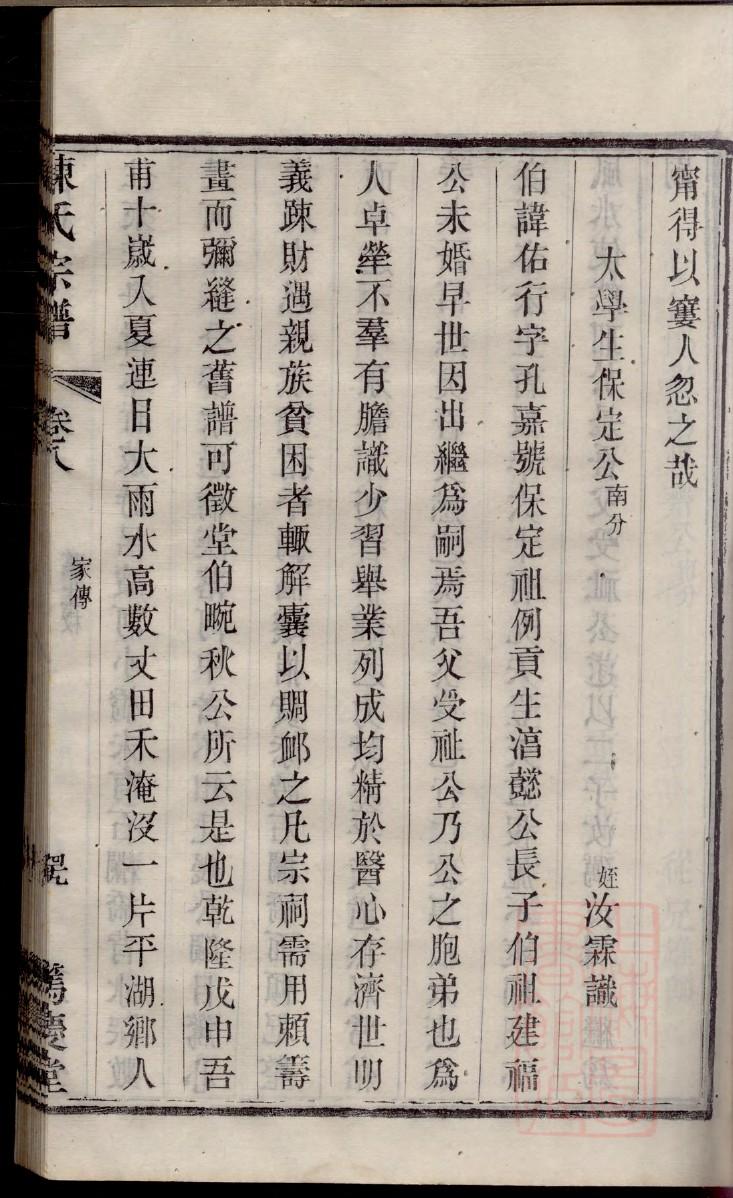 甯得以窶人忽之哉
太學生保定公南分 姪汝霖識
伯諱佑行字孔嘉號保定祖例貢生湻懿公長子伯祖建福
公未婚早世因出繼爲嗣焉吾父受祉公乃公之胞弟也爲
人卓犖不羣有膽識少習舉業列成均精於醫心存濟世明
義踈財遇親族貧困者輙解囊以賙衈之凡宗祠需用賴籌
畫而彌縫之舊譜可徵堂伯畹秋公所云是也乾隆戊申吾
甫十嵗入夏連日大雨水高數丈田禾淹沒一片平湖鄉人
陳氏宗譜 卷八 家傳 篤慶堂